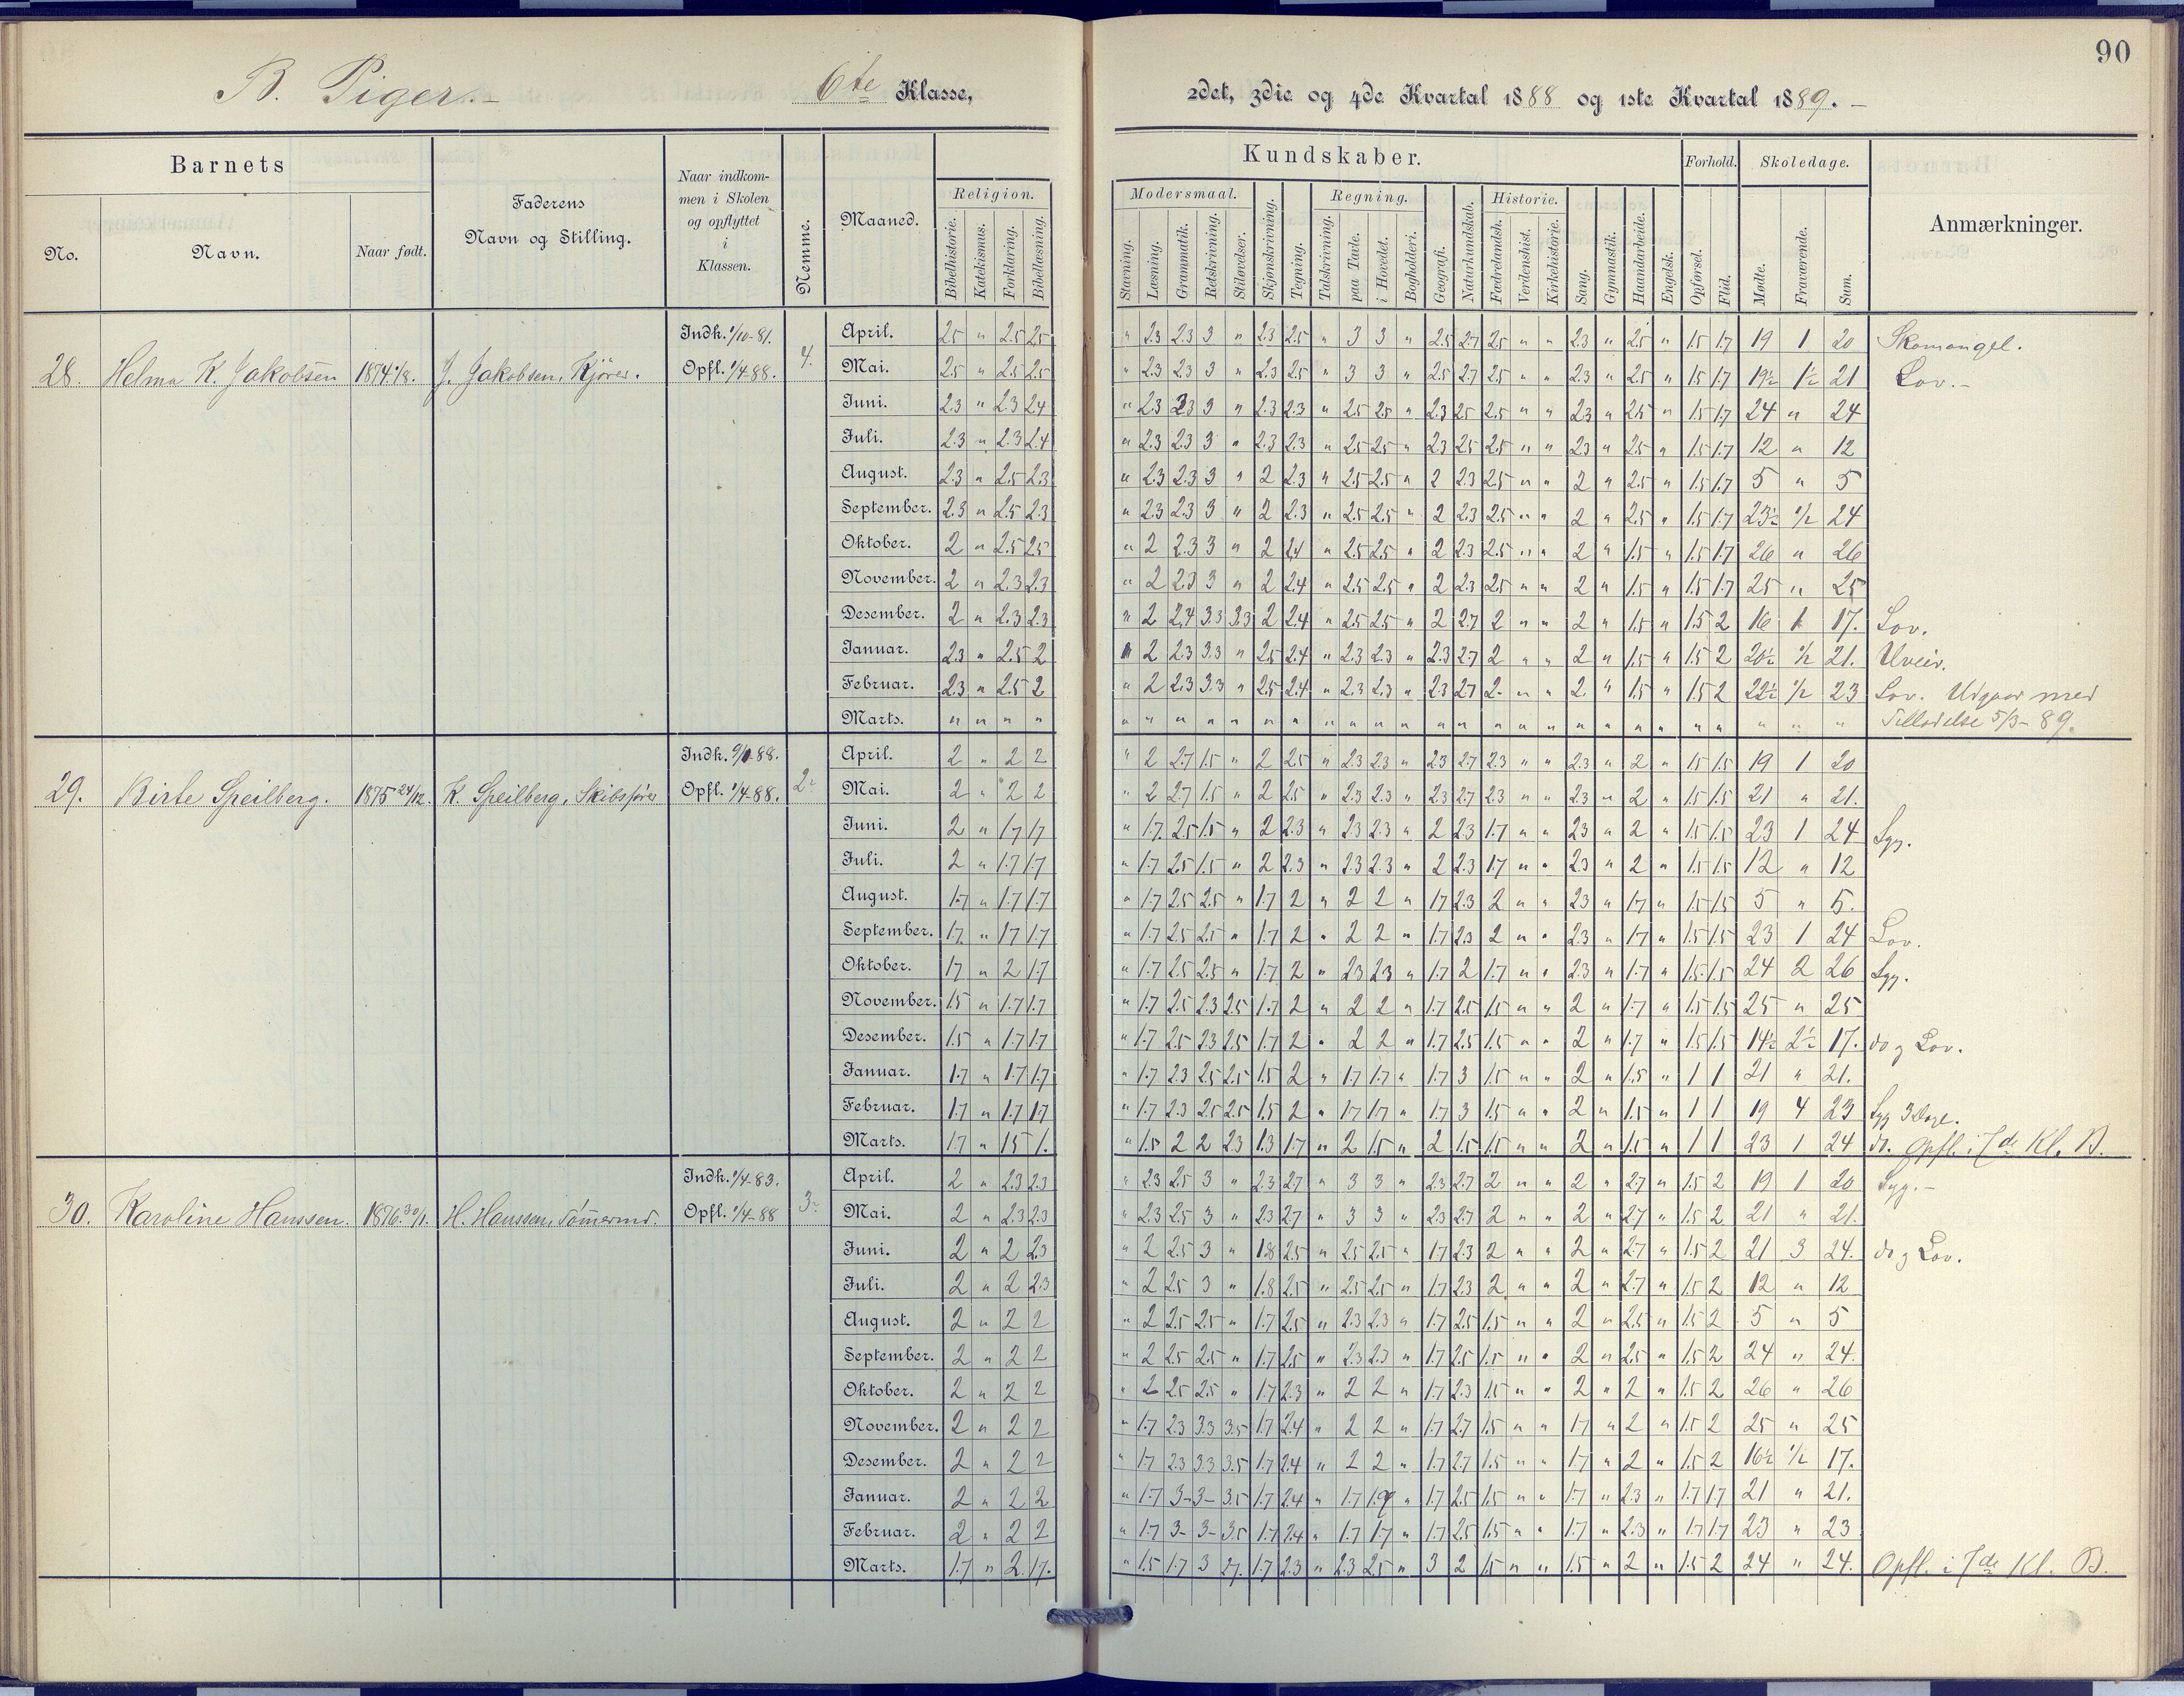 90
B. Piger.- 6te Klasse, 2det, 3die og 4de Kvartal 1888 og 1ste Kvartal 1889. -
Barnets
No.
Navn.
Naar født.
Faderens
Navn og Stilling.
Naar indkom-
men i Skolen
og opflyttet
i
Klassen.
Nemme.
Maaned.
Kundskaber.
Religion.
Bibelhistorie.
Katekismus.
Forklaring.
Bibellæsning.
Modersmaal.
Stavning.
Læsning.
Grammatik.
Retskrivning.
Stiløvelser.
Skjønskrivning.
Tegning.
Regning.
Talskrivning.
paa Tavle.
i Hovedet.
Bogholderi.
Geografi.
Naturkundskab.
Historie.
Fædrelandsh.
Verdenshist.
Kirkehistorie.
Sang.
Gymnastik.
Haandarbeide.
Engelsk.
Forhold.
Opførsel.
Flid.
Skoledage.
Mødte.
Fraværende.
Sum.
Anmærkninger.
28. Helma K. Jakobsen 1874 J. Jakobsen, Kjører. Indk. 1/10-81. Opfl. 1/4-88. 4.
April. 2.5 " 2.5 2.5 " 2.3 2.3 3 " 2.3 2.5 " 3 3 " 2.5 2.7 2.5 " " 2.3 " 2.5 " 1.5 1.7 19 1 20 Skomangel.
Mai. 2.5 " 2.5 2.5 " 2.3 2.3 3 " 2.3 2.5 " 3 3 " 2.5 2.7 2.5 " " 2.3 " 2.5 " 1.5 1.7 19½ 1½ 21 Lov.-
Juni. 2.3 " 2.3 2.4 " 2.3 2.3 3 " 2.3 2.3 " 2.5 2.5 " 2.3 2.5 2.5 " " 2.3 " 2.5 " 1.5 1.7 24 " 24
Juli. 2.3 " 2.3 2.4 " 2.3 2.3 3 " 2.3 2.3 " 2.5 2.5 " 2.3 2.5 2.5 " " 2.3 " 2.5 " 1.5 1.7 12 " 12
August. 2.3 " 2.5 2.3 " 2.3 2.3 3 " 2 2.3 " 2.5 2.5 " 2 2.3 2.5 " " 2 " 2.5 " 1.5 1.7 5 " 5
September. 2.3 " 2.5 2.3 " 2.3 2.3 3 " 2 2.3 " 2.5 2.5 " 2 2.3 2.5 " " 2 " 2.5 " 1.5 1.7 23½ ½ 24
Oktober. 2 " 2.5 2.5 " 2 2.3 3 " 2 2.4 " 2.5 2.5 " 2 2.3 2.5 " " 2 " 1.5 " 1.5 1.7 26 " 26
November. 2 " 2.3 2.3 " 2 2.3 3 " 2 2.4 " 2.5 2.5 " 2 2.3 2.5 " " 2 " 1.5 " 1.5 1.7 25 " 25
Desember. 2 " 2.3 2.3 " 2 2.4 3.3 3.3 2 2.4 " 2.5 2.5 " 2 2.7 2 " " 2 " 1.5 " 1.5 2 16 1 17. Lov.
Januar. 2.3 " 2.5 2 " 2 2.3 3.3 " 2.5 2.4 " 2.3 2.3 " 2.3 2.7 2 " " 2 " 1.5 " 1.5 2 20½ ½ 21. Uveir.
Februar. 2.3 " 2.5 2 " 2 2.3 3.3 " 2.5 2.4 " 2.3 2.3 " 2.3 2.7 2- " " 2 " 1.5 " 1.5 2 22½ ½ 23 Lov. Udgaar med
Marts. " " " " " " " " " " " " " " " " " " " " " " " " " " " " " Tilladelse 5/3-89.
29. Birte Speilberg. 1875 24/12. K. Speilberg, Skibsfører Opfl. 1/4-88. 2-
April. 2 " 2 2 " 2 2.7 1.5 " 2 2.5 " 2.3 2.3 " 2.3 2.7 2.3 " " 2.3 " 2 " 1.5 1.5 19 1 20
Mai. 2 " 2 2 " 2 2.7 1.5 " 2 2.5 " 2.3 2.3 " 2.3 2.7 2.3 " " 2.3 " 2 " 1.5 1.5 21 " 21.
Juni. 2 " 1.7 1.7 " 1.7 2.5 1.5 " 2 2.3 " 2.3 2.3 " 2 2.3 1.7 " " 2.3 " 2 " 1.5 1.5 23 1 24 Syg.
Juli. 2 " 1.7 1.7 " 1.7 2.5 1.5 " 2 2.3 " 2.3 2.3 " 2 2.3 1.7 " " 2.3 " 2 " 1.5 1.5 12 " 12
August. 1.7 " 1.7 1.7 " 1.7 2.5 2.5 " 1.7 2 " 2 2 " 1.7 2.3 2 " " 2.3 " 1.7 " 1.5 1.5 5 " 5.
September. 1.7 " 1.7 1.7 " 1.7 2.5 2.5 " 1.7 2 " 2 2 " 1.7 2.3 2 " " 2.3 " 1.7 " 1.5 1.5 23 1 24 Lov.
Oktober. 1.7 " 2 1.7 " 1.7 2.5 2.5 " 1.7 2 " 2.3 2.3 " 1.7 2 1.7 " " 2.3 " 1.7 " 1.5 1.5 24 2 26 Syg.
November. 1.5 " 1.7 1.7 " 1.7 2.5 2.3 2.5 1.7 2 " 2 2 " 1.7 2.5 1.5 " " 2 " 1.7 " 1.5 1.5 25 " 25
Desember. 1.5 " 1.7 1.7 " 1.7 2.5 2.3 2.5 1.7 2 " 2 2 " 1.7 2.5 1.5 " " 2 " 1.7 " 1.5 1.5 14½ 2½ 17. do og Lov.
Januar. 1.7 " 1.7 1.7 " 1.7 2.3 2.5 2.5 1.5 2 " 1.7 1.7 " 1.7 3 1.5 " " 2 " 1.5 " 1 1 21 " 21.
Februar. 1.7 " 1.7 1.7 " 1.7 2.3 2.5 2.5 1.5 2 " 1.7 1.7 " 1.7 3 1.5 " " 2 " 1.5 " 1 1 19 4 23 Syg 3 Dage.
Marts. 1.7 " 1.5 1. " 1.5 2 2 2.3 1.3 1.7 " 2 1.5 " 2 1.5 1.5 " " 2 " 1.5 " 1 1 23 1 24 do. Opfl. i 7de Kl. B.
30. Karoline Hanssen. 1876. 30/1. H. Hanssen, Tømermd. Indk. 1/4-83. Opfl. 1/4-88 3-
April. 2 " 2.3 2.3 " 2.3 2.5 3 " 2.3 2.7 " 3 3 " 2.3 2.7 2 " " 2 " 2.7 " 1.5 2 19 1 20 Syg.-
Mai. 2 " 2.3 2.3 " 2.3 2.5 3 " 2.3 2.7 " 3 3 " 2.3 2.7 2 " " 2 " 2.7 " 1.5 2 21 " 21.
Juni. 2 " 2 2.3 " 2 2.5 3 " 1.8 2.5 " 2.5 2.5 " 1.7 2.3 2 " " 2 " 2.7 " 1.5 2 21 3 24. do og Lov.
Juli. 2 " 2 2.3 " 2 2.5 3 " 1.8 2.5 " 2.5 2.5 " 1.7 2.3 2 " " 2 " 2.7 " 1.5 2 12 " 12
August. 2 " 2 2 " 2 2.5 2.5 " 1.7 2.5 " 2.3 2.3 " 1.7 2.5 1.5 " " 2 " 2.5 " 1.5 2 5 " 5
September. 2 " 2 2 " 2 2.5 2.5 " 1.7 2.5 " 2.3 2.3 " 1.7 2.5 1.5 " " 2 " 2.5 " 1.5 2 24 " 24.
Oktober. 2 " 2 2 " 2 2.5 2.5 " 1.7 2.3 " 2 2 " 1.7 2.3 1.5 " " 2 " 2 " 1.5 2 26 " 26
November. 2 " 2 2 " 1.7 2.3 3.3 3.5 1.7 2.4 " 2 2 " 1.7 2.7 1.5 " " 1.7 " 2 " 1.5 2 25 " 25
Desember. 2 " 2 2 " 1.7 2.3 3.3 3.5 1.7 2.4 " 2 2 " 1.7 2.7 1.5 " " 1.7 " 2 " 1.5 2 16½ ½ 17.
Januar. 2 " 2 2 " 1.7 3- 3- 3.5 1.7 2.4 " 1.7 " 1.7 2.5 1.5 " " 1.7 " 2.3 " 1.7 1.7 21 " 21.
Februar. 2 " 2 2 " 1.7 3- 3- 3.5 1.7 2.4 " 1.7 1.7 " 1.7 2.5 1.5 " " 1.7 " 2.3 " 1.7 1.7 23 " 23
Marts. 1.7 " 2. 1.7. " 1.5 1.7 3 2.7. 1.7 2.3 " 2.3 2.5 " 3 2 1.5 " " 1.5 " 2 " 1.5 2 24 " 24. Opfl. i 7de Kl. B.